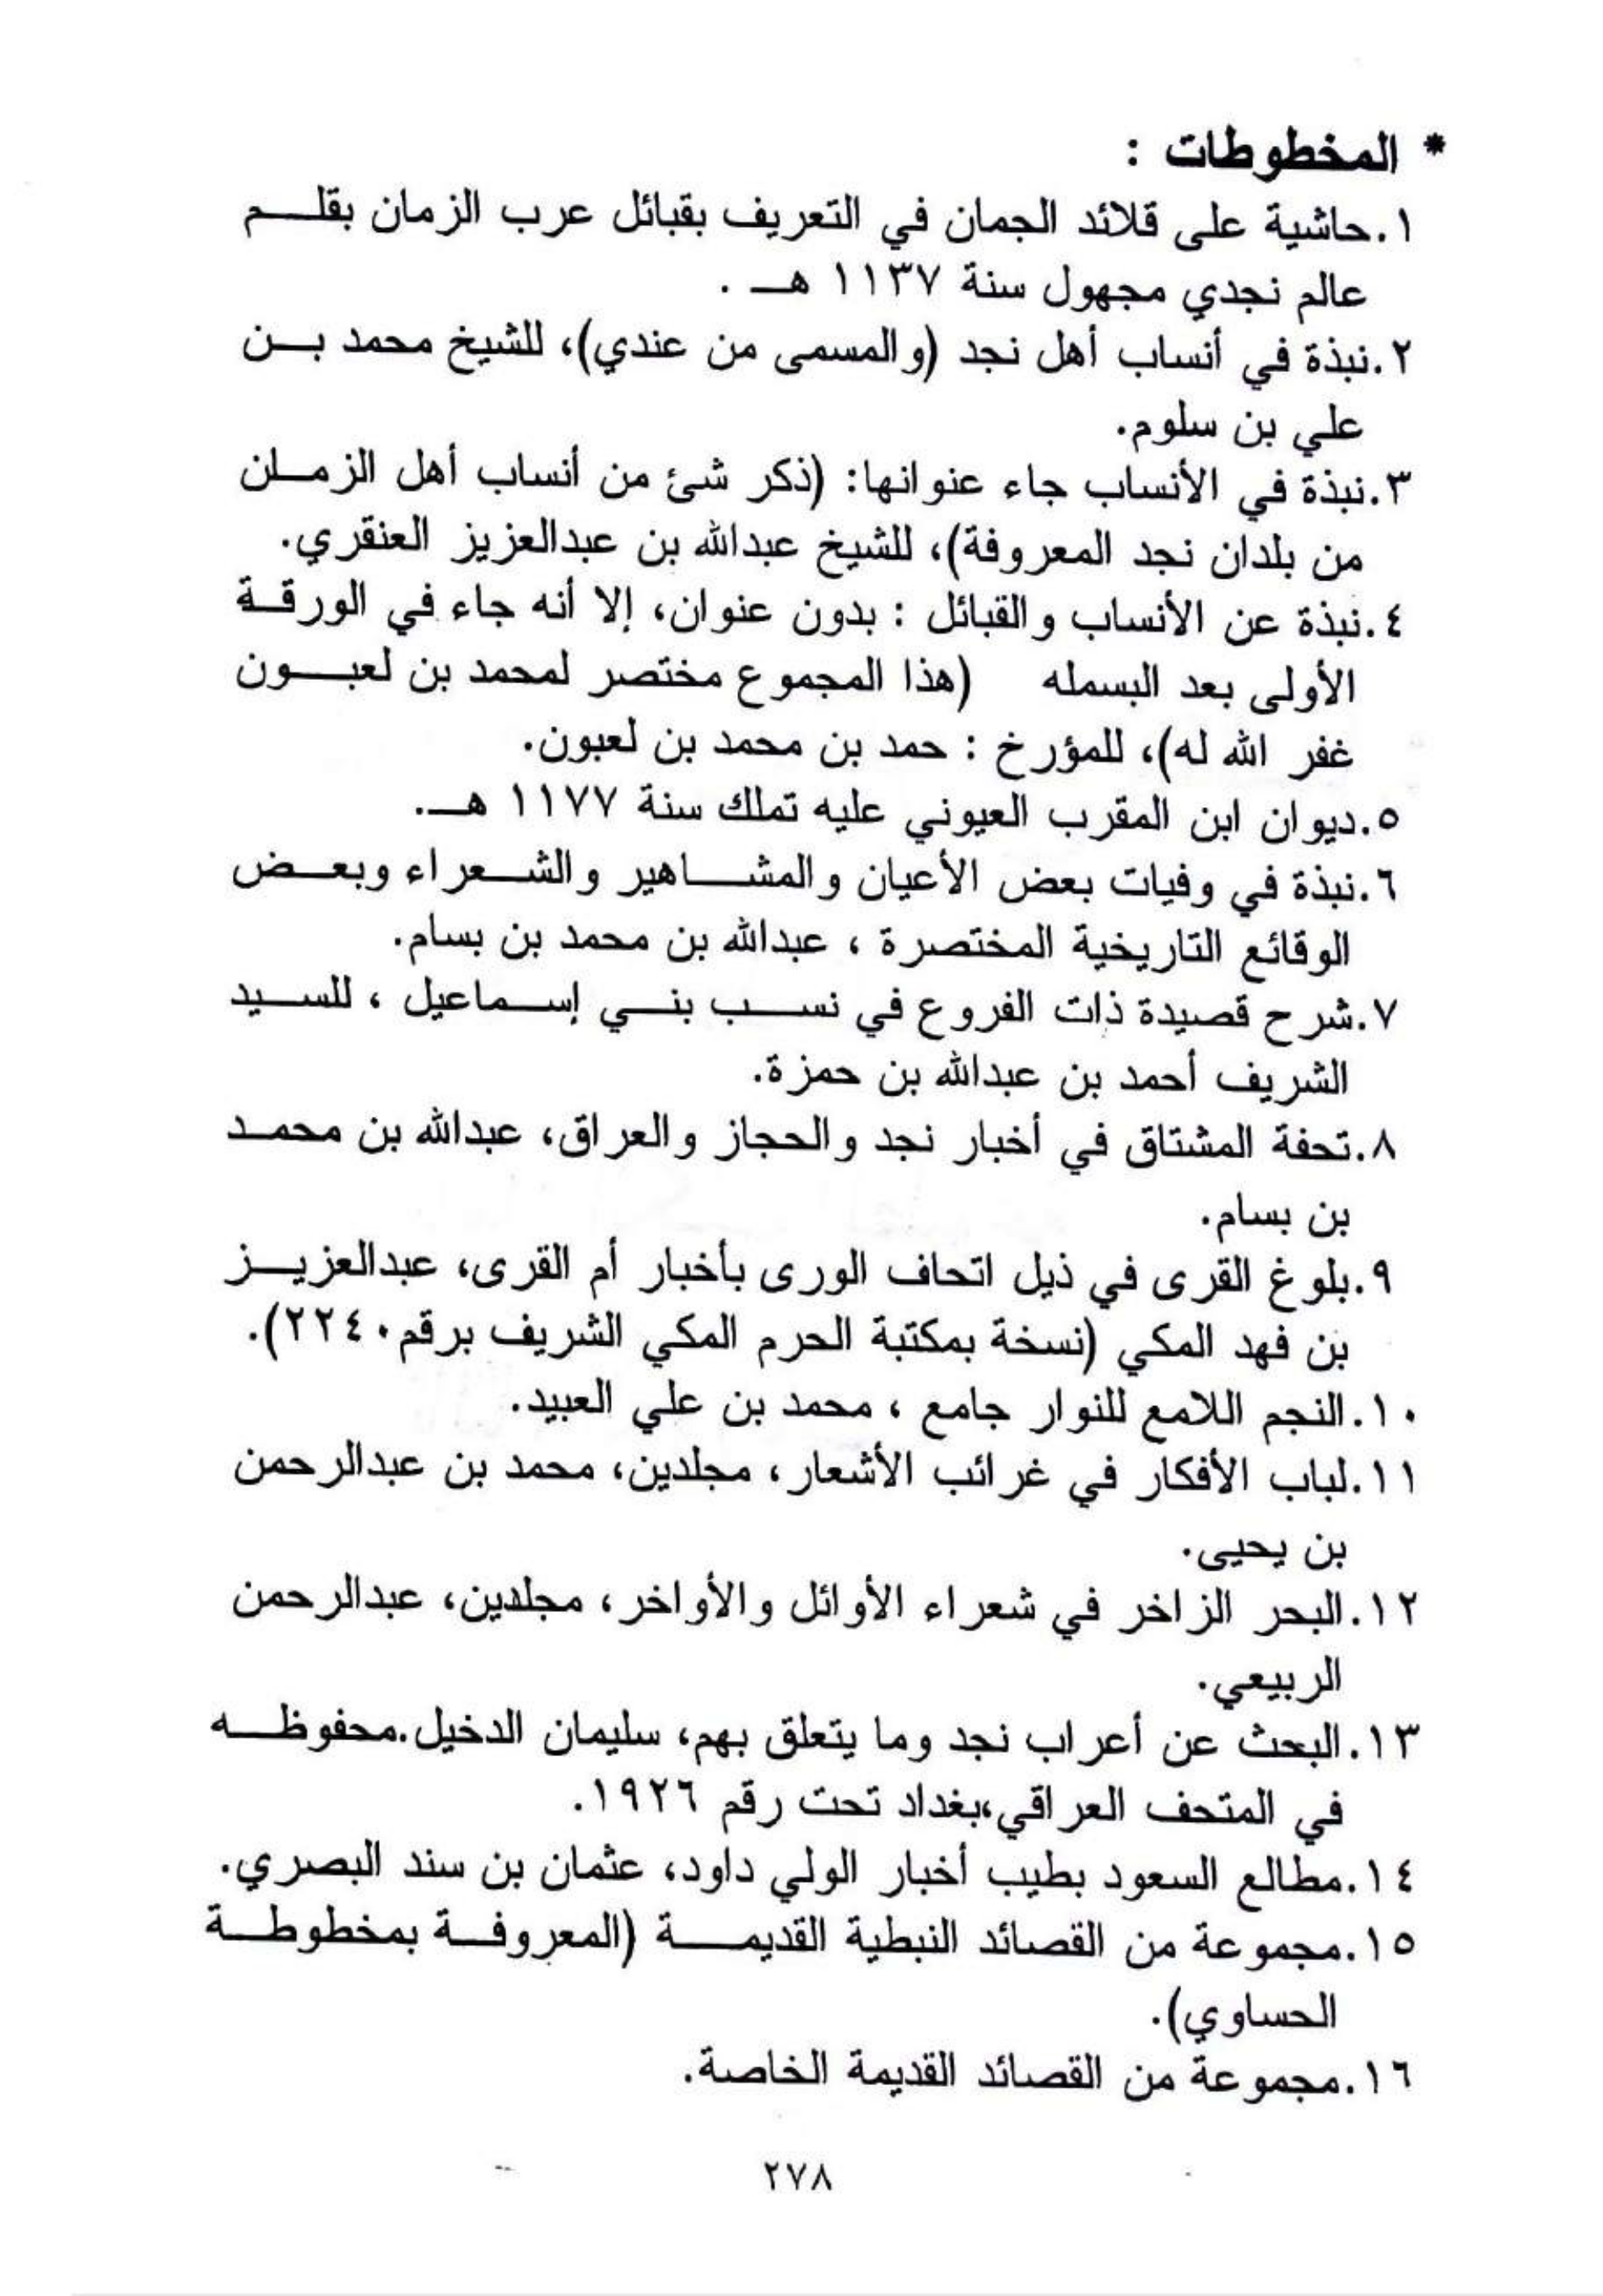 * المخطوطات :
١.حاشية على قلائد الجمان في التعريف بقبائل عرب الزمان بقلم
عالم نجدي مجهول سنة ١١٣٧ هـ .
٢.نبذة في أنساب أهل نجد (والمسمى من عندي)، للشيخ محمد بن
علي بن سلوم.
٣.نبذة في الأنساب جاء عنوانها: (ذكر شئ من أنساب أهل الزمان
من بلدان نجد المعروفة)، للشيخ عبدالله بن عبدالعزيز العنقري.
٤.نبذة عن الأنساب والقبائل : بدون عنوان، إلا أنه جاء في الورقة
الأولى بعد البسمله (هذا المجموع مختصر لمحمد بن لعبون
غفر الله له)، للمؤرخ : حمد بن محمد بن لعبون.
٥.ديوان ابن المقرب العيوني عليه تملك سنة ١١٧٧ هـ.
٦.نبذة في وفيات بعض الأعيان والمشاهير والشعراء وبعض
الوقائع التاريخية المختصرة ، عبدالله بن محمد بن بسام.
٧.شرح قصيدة ذات الفروع في نسب بني إسماعيل ، للسيد
الشريف أحمد بن عبدالله بن حمزة.
٨.تحفة المشتاق في أخبار نجد والحجاز والعراق، عبدالله بن محمد
بن بسام.
٩.بلوغ القرى في ذيل اتحاف الورى بأخبار أم القرى، عبدالعزيز
بن فهد المكي (نسخة بمكتبة الحرم المكي الشريف برقم٢٢٤٠).
١٠.النجم اللامع للنوار جامع ، محمد بن علي العبيد.
١١.لباب الأفكار في غرائب الأشعار، مجلدين، محمد بن عبدالرحمن
بن يحيى.
١٢.البحر الزاخر في شعراء الأوائل والأواخر، مجلدين، عبدالرحمن
الربيعي.
١٣.البحث عن أعراب نجد وما يتعلق بهم، سليمان الدخيل.محفوظه
في المتحف العراقي،بغداد تحت رقم ١٩٢٦.
١٤.مطالع السعود بطيب أخبار الولي داود، عثمان بن سند البصري.
١٥.مجموعة من القصائد النبطية القديمة (المعروفة بمخطوطة
الحساوي).
١٦.مجموعة من القصائد القديمة الخاصة.
٢٧٨